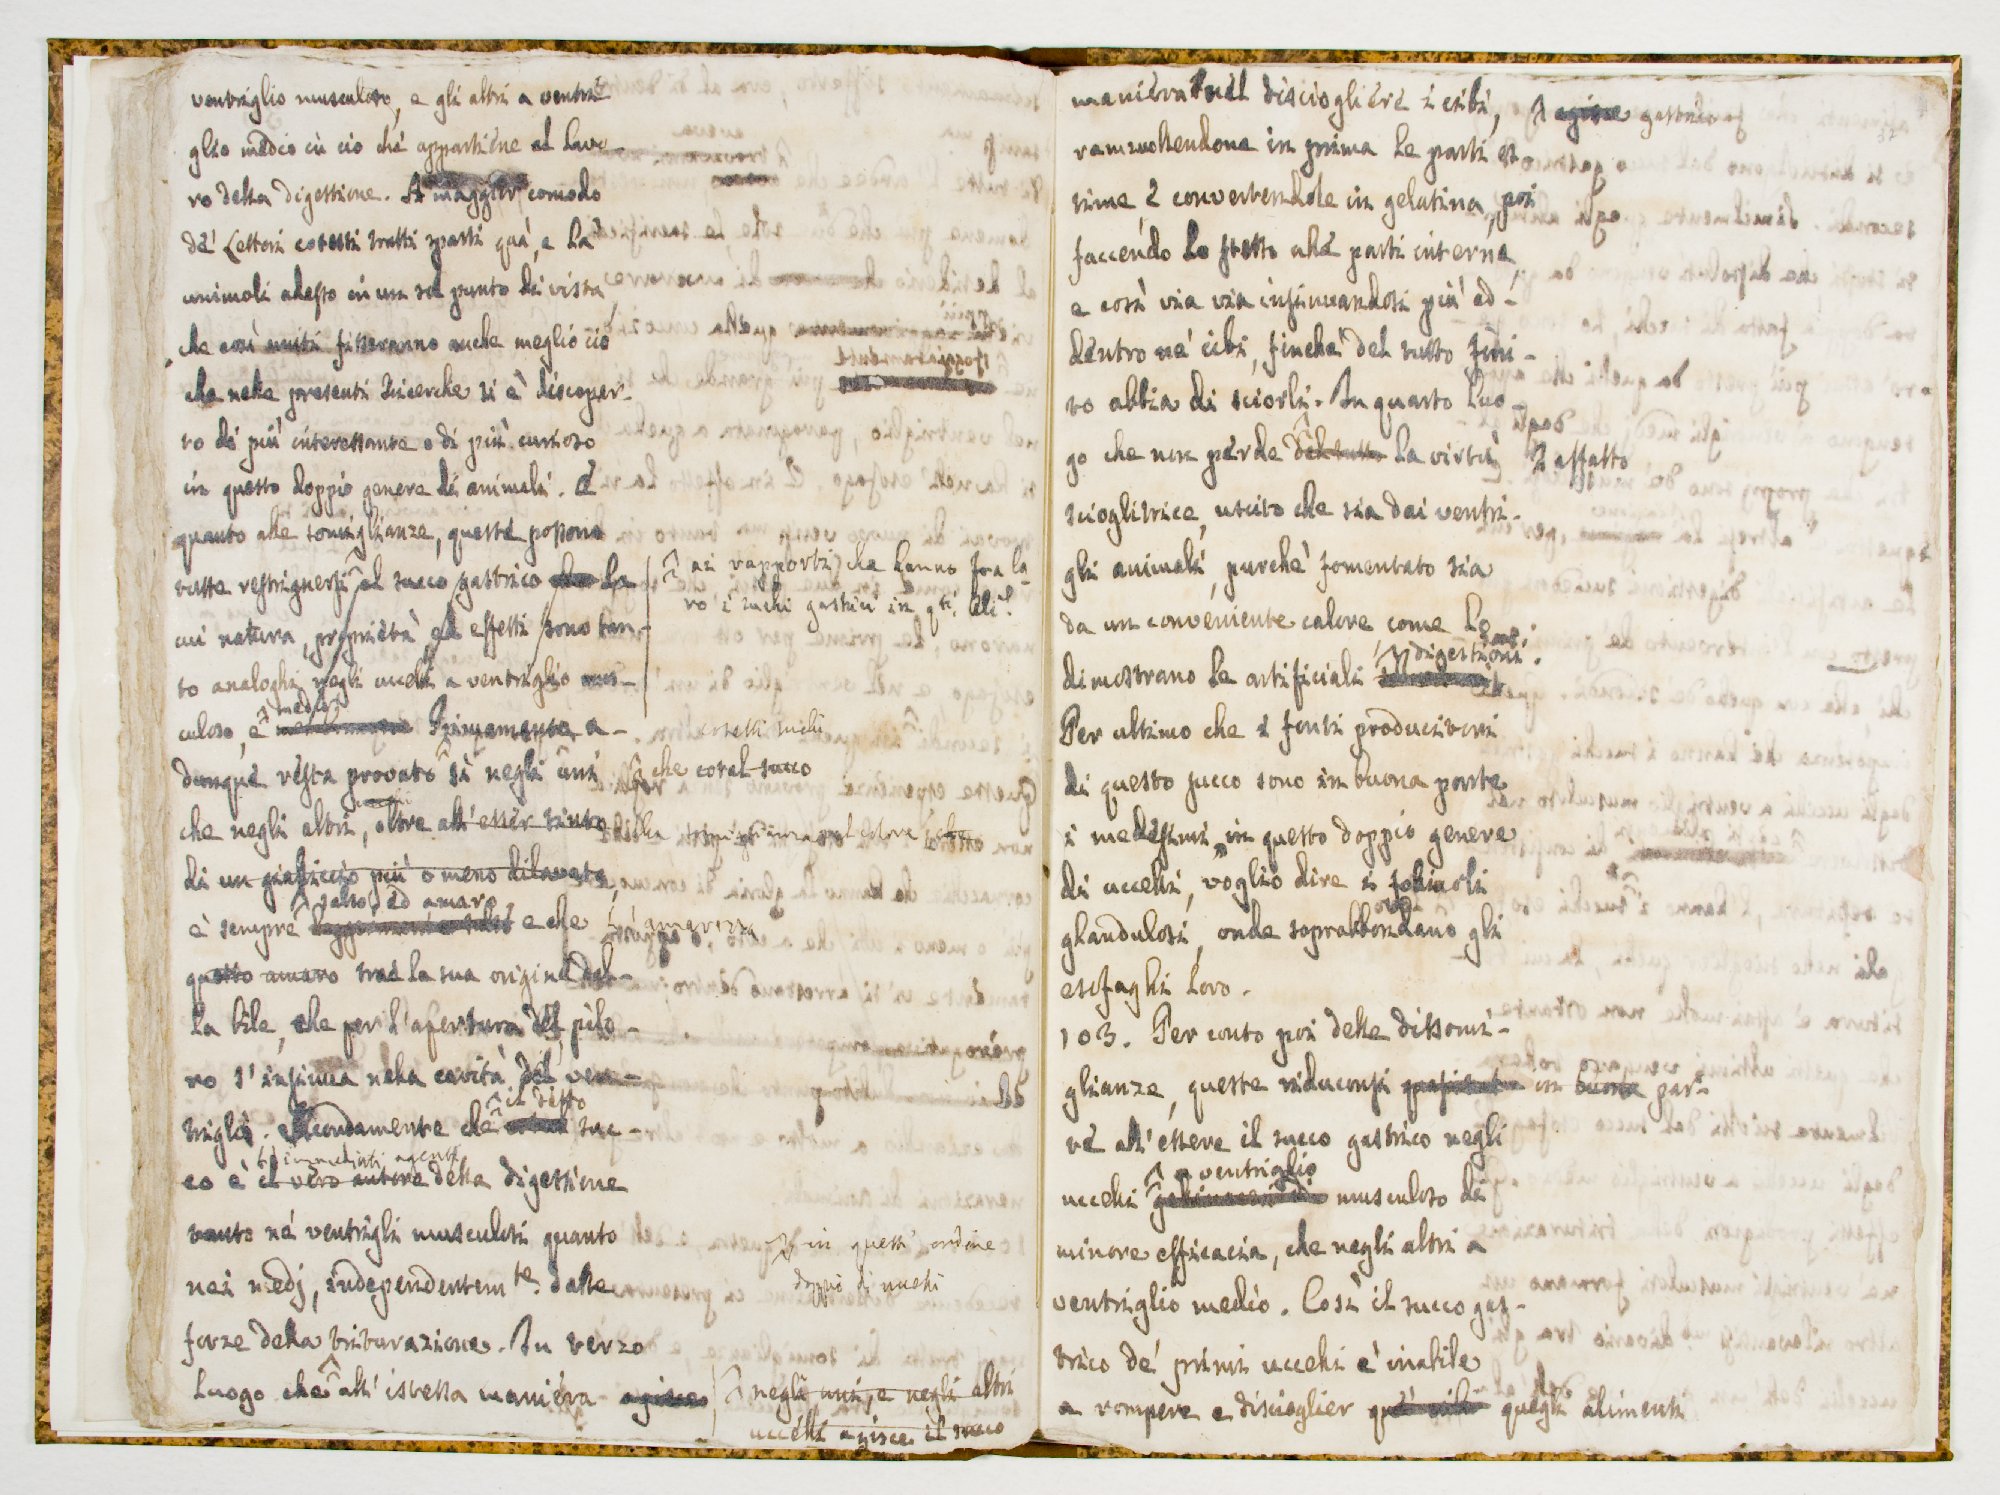 ventriglio musculoso, e gli altri a ventri-
glio medio in ciò che appartiene al lavo-
ro della digestione. A maggior comodo
de' Lettori cotesti tratti sparsi quà, e là
uniamoli adesso in un sol punto di vista,
che così uniti fisseranno anche meglio ciò
che nelle presenti ricerche si è discoper-
to di più interessante e di più curioso
in questo doppio genere di animali. E
quanto alle somiglianze, queste possono
tutte restrignersi al succo gastrico la
cui natura, proprietà, ed effetti sono tan-
to analoghi negli uccelli a ventriglio mus-
culoso, e
medio.
Primamente a-
dunque resta provato sì negli uni
che negli altri, oltre all'esser tinto
di un gialliccio più o meno dilavato,
salso, ed amaro,
è sempre e che
questo amaro trae la sua origine dal-
la bile, che per l'apertura del pilo-
ro s'insinua nella cavità del ven-
triglio. Secondamente che
il detto
suc-
immediati agenti
co è il vero autore della digestione
tanto ne' ventrigli musculosi quanto
nei medj, independentem.te dalle
forze della triturazione. In terzo
luogo che all'istessa maniera agisce
ai rapporti che hanno fra lo-
ro i suchi gastrici in qti.
cotesti suchi
che cotal succo
l'amarezza
in questi ordine
doppio di uccelli
negli uni, e negli altri
uccelli agisce il succo
maniera nel disciogliere i cibi,
agisce gastrico
rammollendone in prima le parti es-
time e convertendole in gelatina, poi
facendo lo stesso alle parti interne,
e così via via insinuandosi più ad-
dentro ne' cibi, finchè del tutto fini-
to abbia di sciorli. In quarto luo-
go che non perde del tutto la virtù
affatto
scioglitrice, uscito che sia dai ventri-
gli animali, purchè fomentato sia
da un conveniente calore, come lo
dimostrano le artificiali
digestioni.
Per ultimo che i fonti producitori
di questo succo sono in buona parte
i medesimi in questo doppio genere
di uccelli, voglio dire i folicoli
glandulosi, onde soprabbondano gli
esofaghi loro.
103. Per conto poi delle dissomi-
glianze, queste riduconsi in buona par-
te all'essere il succo gastrico negli
a ventriglio
uccelli musculoso di
minore efficacia, che negli altri a
ventriglio medio. Così il succo gas-
trico de' primi uccelli è inabile
a rompere e discioglier quegli alimenti